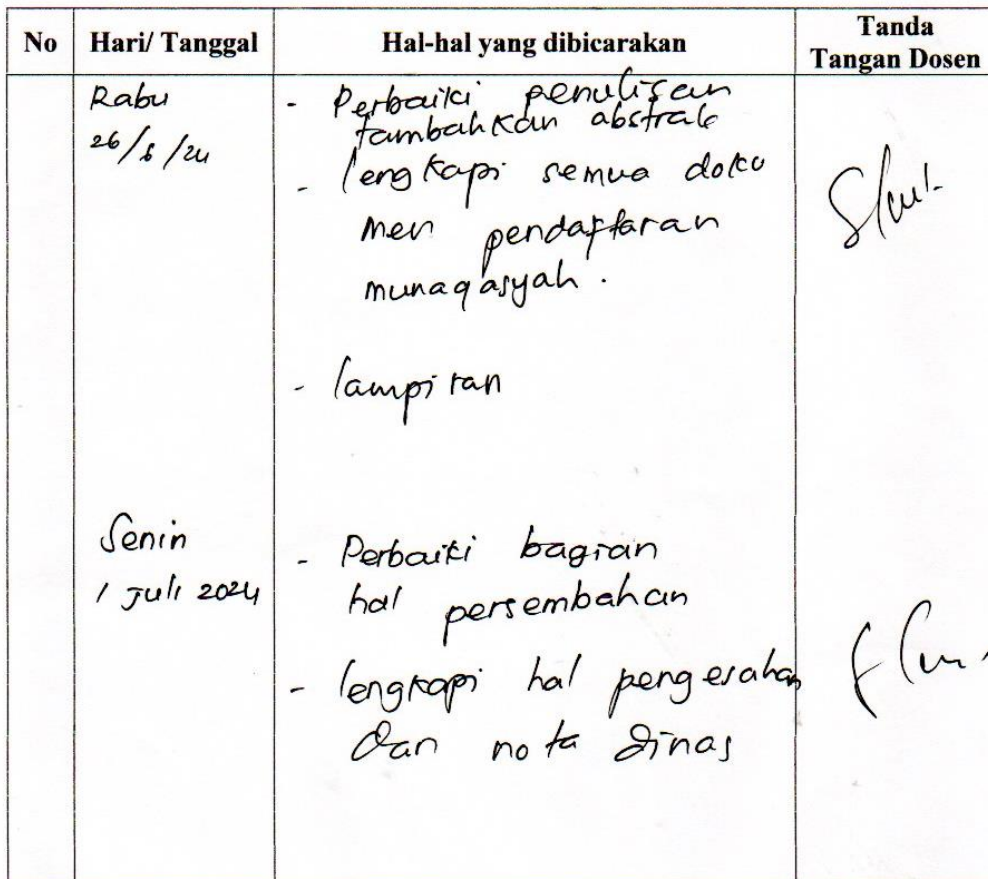 No Hari/ Tanggal Hal-hal yang dibicarakan Tanda Tangan Dosen
Rabu
26/6/24
- Perbaiki penulisan
tambahkan abstrak
- lengkapi semua doku
men pendaftaran
munaqasyah.
- lampiran
Senin
1 Juli 2024
- Perbaiki bagian
hal persembahan
- lengkapi hal pengesahan
dan nota dinas